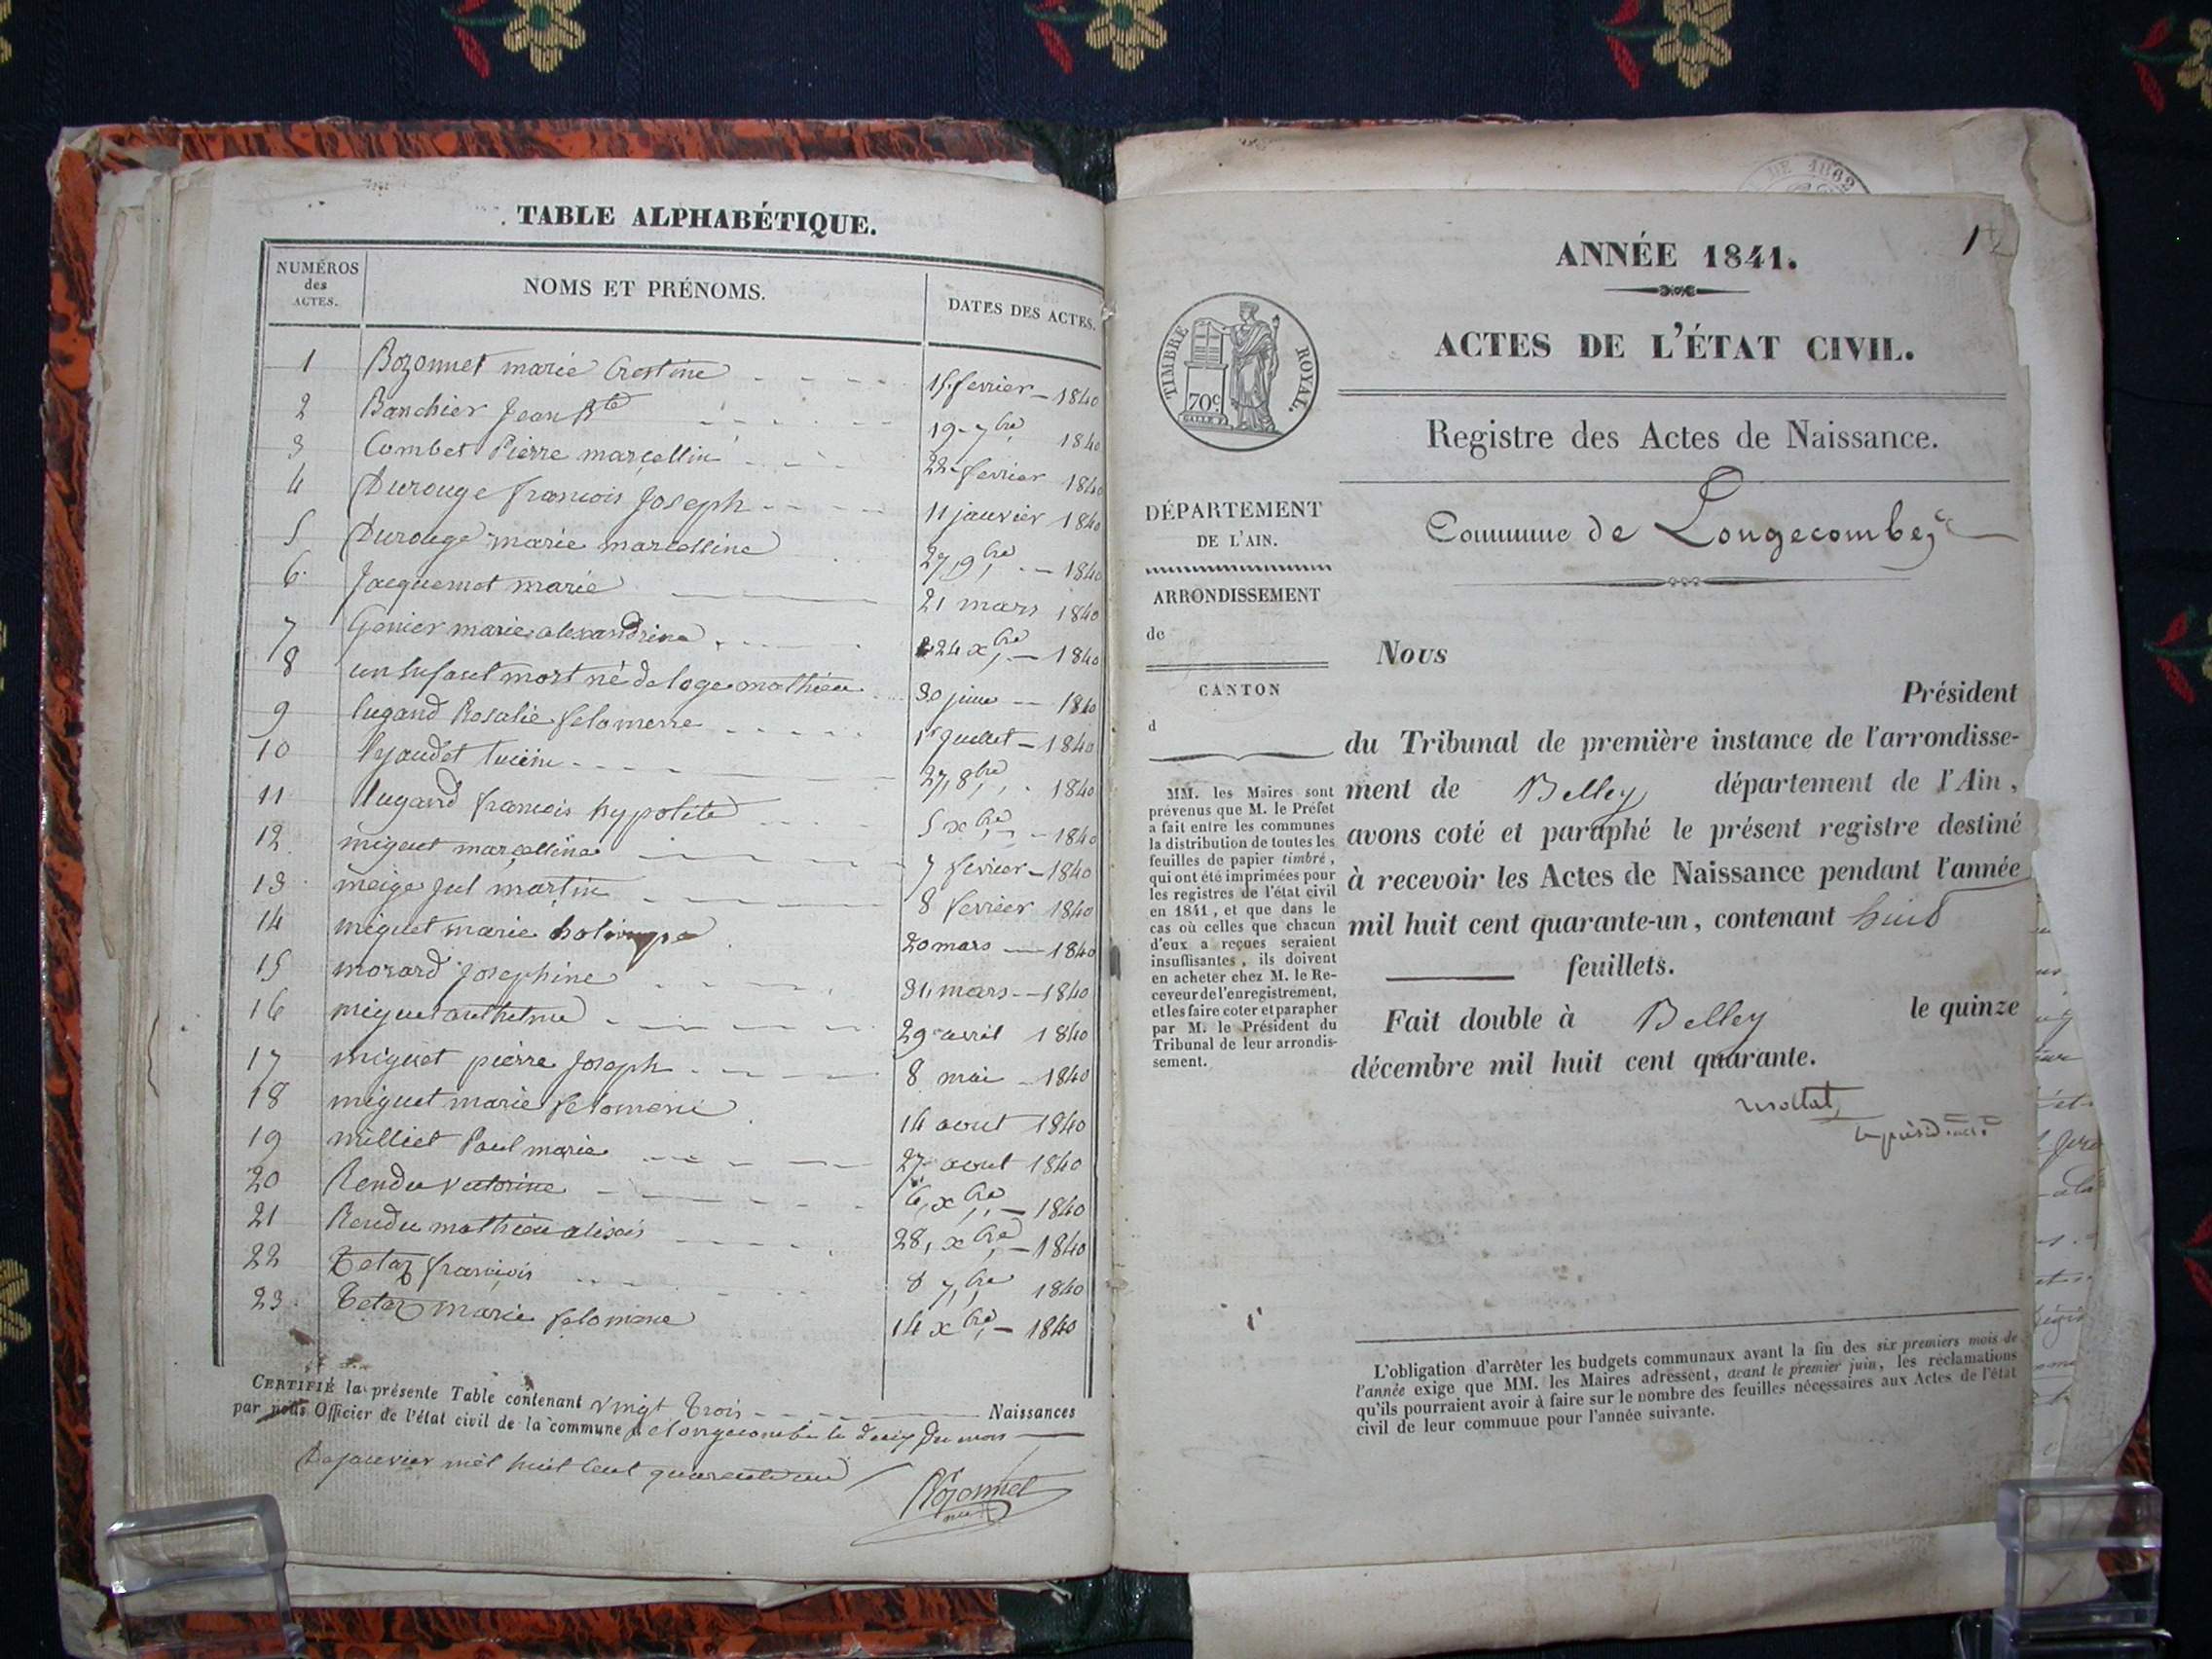 TABLE ALPHABÉTIQUE.
NUMÉROS des ACTES. NOMS ET PRÉNOMS. DATES DES ACTES.
1 Bozonnet marie Crestine 15 fevrier 1840
2 Banchier Jean Bte 19 7bre 1840
3 Combet Pierre marcellin 22 fevrier 1840
4 Durouge francois Joseph 11 janvier 1840
5 Durouge marie marcelline 27 9bre 1840
6 Jacquemet marie 21 mars 1840
7 Genier marie alexandrine 24 xbre 1840
8 un Enfant mort né de loge mathieu 30 juin 1840
9 lugand Rosalie felomene 1er Juillet 1840
10 lejaudet lucien 27, 8bre 1840
11 lugand francois hypolite 5 xbre 1840
12 miguet marcelline 7 fevrier 1840
13 meige Jul martin 8 fevrier 1840
14 miguet marie 20 mars 1840
15 morard Josephine 31 mars 1840
16 miguet anthelme 29 avril 1840
17 miguet pierre Joseph 8 mai 1840
18 miguet marie felomene 14 aout 1840
19 milliet Paul marie 27 aout 1840
20 Rendu victorine 6, xbre 1840
21 Rendu mathieu alixis 28, xbre 1840
22 Tetaz francois 8 7bre 1840
23 Tetaz marie felomene 14 xbre 1840
CERTIFIÉ la présente Table contenant vingt trois Naissances
par nous Officier de l'état civil de la commune de longecombe le deux du mois
De janvier mil huit cent quarante un
Bozonnet
DE 1862
1
ANNÉE 1841.
ACTES DE L'ÉTAT CIVIL.
TIMBRE ROYAL.
70c
Registre des Actes de Naissance.
Commune de Longecombe
DÉPARTEMENT
DE L'AIN.
ARRONDISSEMENT
de
CANTON
d
MM. les Maires sont
prévenus que M. le Préfet
a fait entre les communes
la distribution de toutes les
feuilles de papier timbré,
qui ont été imprimées pour
les registres de l'état civil
en 1841, et que dans le
cas où celles que chacun
d'eux a reçues seraient
insuffisantes, ils doivent
en acheter chez M. le Re-
ceveur de l'enregistrement,
et les faire coter et parapher
par M. le Président du
Tribunal de leur arrondis-
sement.
Nous
Président
du Tribunal de première instance de l'arrondisse-
ment de Belley département de l'Ain,
avons coté et paraphé le présent registre destiné
à recevoir les Actes de Naissance pendant l'année
mil huit cent quarante-un, contenant huit
feuillets.
Fait double à Belley le quinze
décembre mil huit cent quarante.
L'obligation d'arrêter les budgets communaux avant la fin des six premiers mois de
l'année exige que MM. les Maires adressent, avant le premier juin, les réclamations
qu'ils pourraient avoir à faire sur le nombre des feuilles nécessaires aux Actes de l'état
civil de leur commune pour l'année suivante.